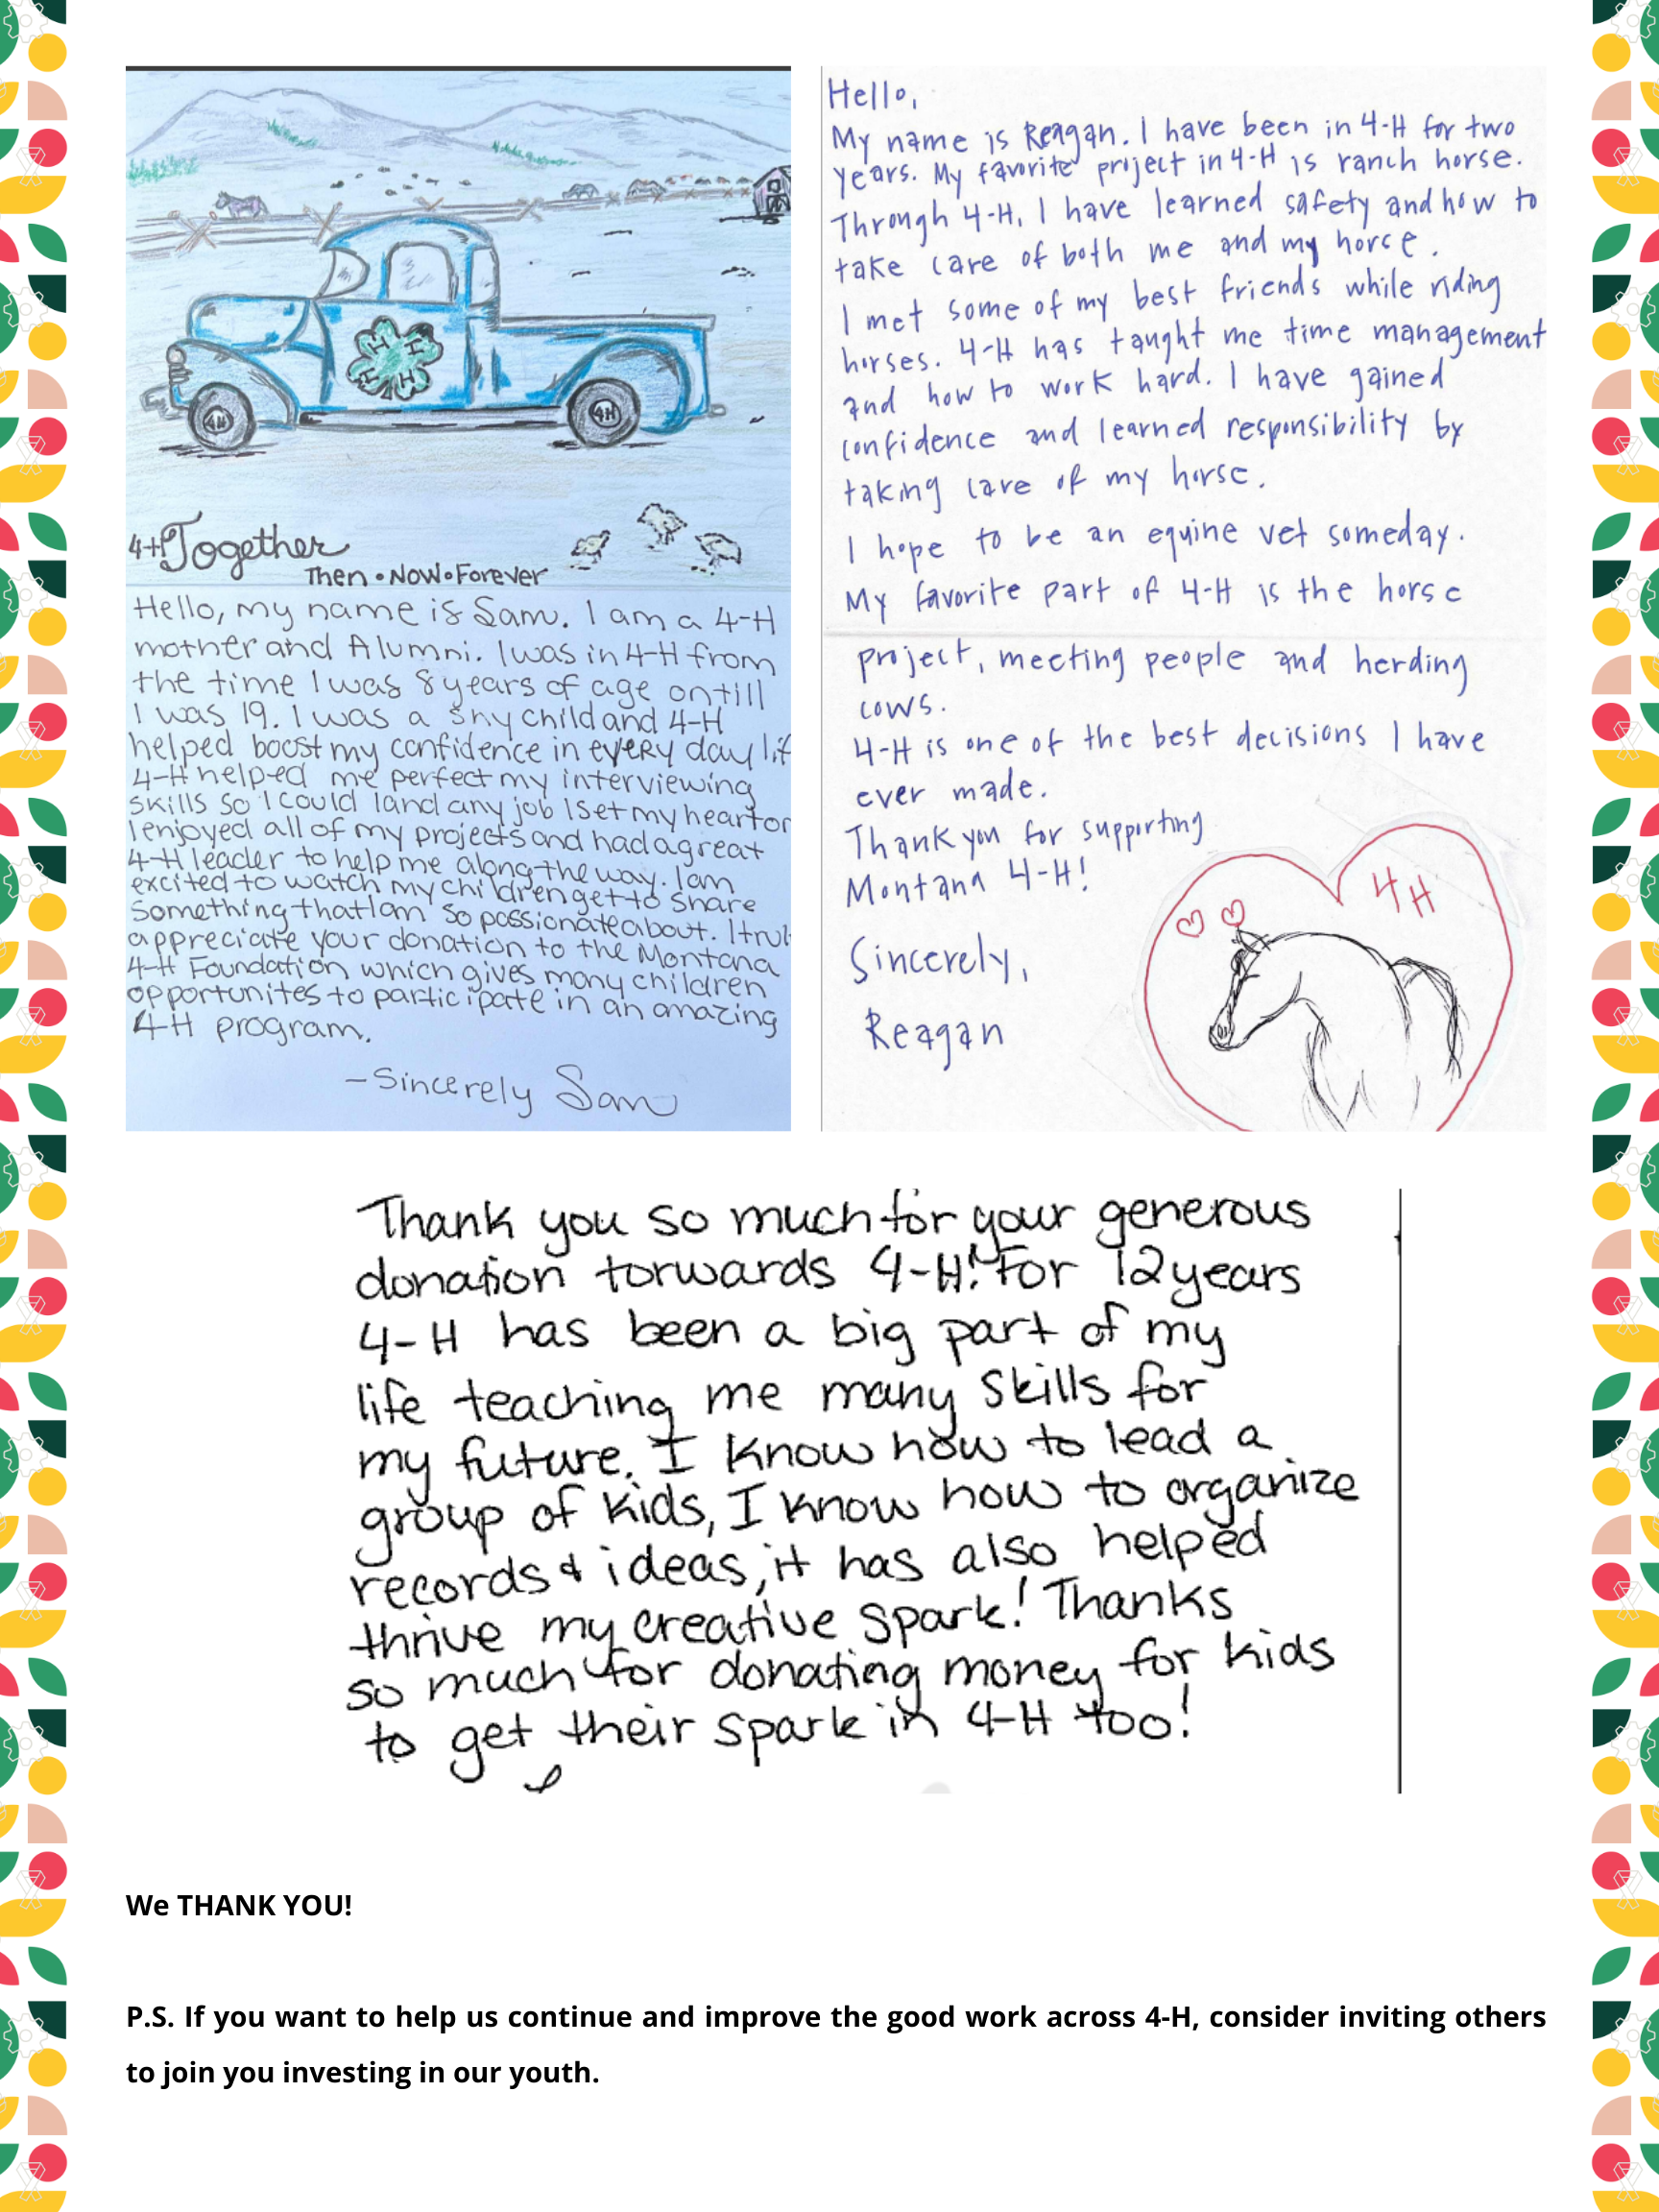 H H
H H
4H 4H
4H Together
Then • Now • Forever
Hello, my name is Sam. I am a 4-H
mother and Alumni. I was in 4-H from
the time I was 8 years of age ontill
I was 19. I was a shy child and 4-H
helped boost my confidence in every day lif
4-H helped me perfect my interviewing
skills so I could land any job I set my heart on
I enjoyed all of my projects and had a great
4-H leader to help me along the way. I am
excited to watch my children get to share
something that I am so passionate about. I trul
appreciate your donation to the Montana
4-H Foundation which gives many children
opportunites to participate in an amazing
4-H program.
- Sincerely Sam
Hello,
My name is Reagan. I have been in 4-H for two
years. My favorite project in 4-H is ranch horse.
Through 4-H, I have learned safety and how to
take care of both me and my horse.
I met some of my best friends while riding
horses. 4-H has taught me time management
and how to work hard. I have gained
confidence and learned responsibility by
taking care of my horse.
I hope to be an equine vet someday.
My favorite part of 4-H is the horse
project, meeting people and herding
cows.
4-H is one of the best decisions I have
ever made.
Thank you for supporting
Montana 4-H!
Sincerely,
Reagan
4H
Thank you so much for your generous
donation torwards 4-H! For 12 years
4-H has been a big part of my
life teaching me many skills for
my future. I know how to lead a
group of kids, I know how to organize
records & ideas, it has also helped
thrive my creative spark! Thanks
so much for donating money for kids
to get their spark in 4-H too!
We THANK YOU!
P.S. If you want to help us continue and improve the good work across 4-H, consider inviting others
to join you investing in our youth.